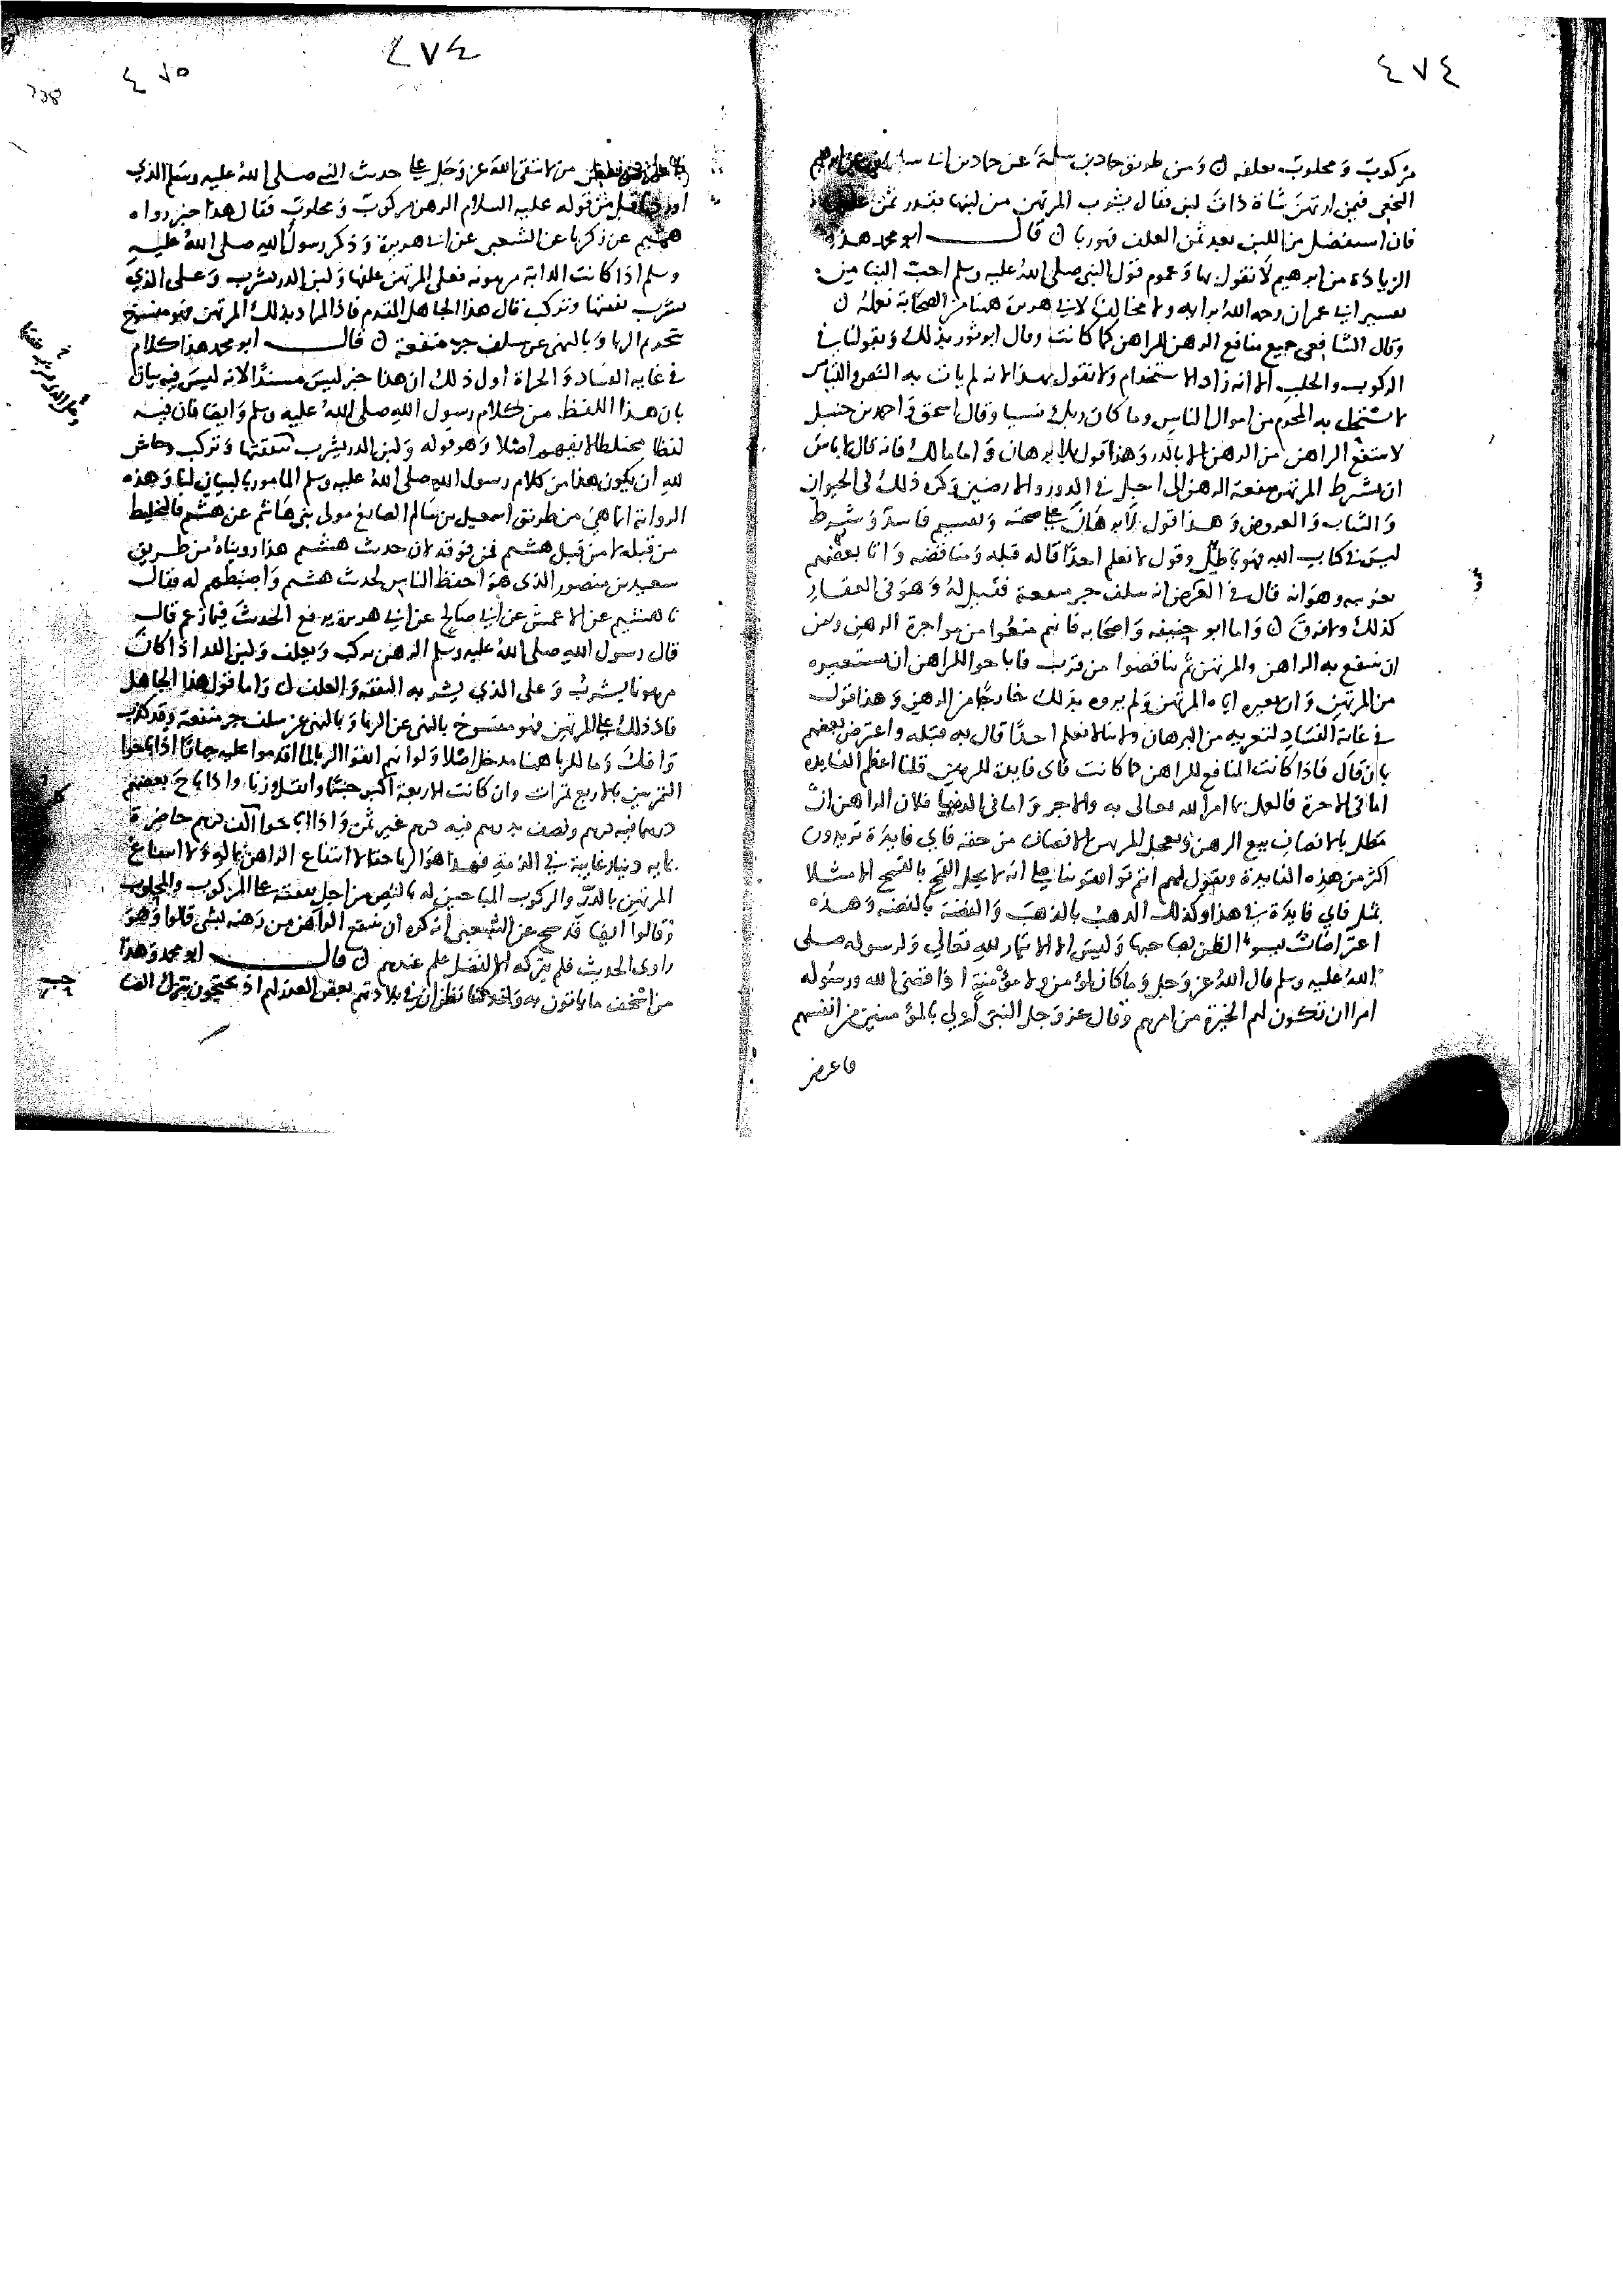 ٤٧٤
مركوب ومحلوب بعلفه ن ومن طريق حماد بن سلمة عن حماد بن ابي سليمان عن ابرهيم
النخعي فيمن ارتهن شاة ذات لبن فقال يشرب المرتهن من لبنها بقدر ثمن علفها
فان استفضل من اللبن بعد ثمن العلف فهو ربا ن قال ابو محمد هذه
الزيادة من ابرهيم لا نقول بها وعموم قول النبي صلى الله عليه وسلم احب الينا من
تفسير ابي عمران رحمه الله برايه ولا مخالف لابي هريرة ههنا من الصحابة نعلمه ن
وقال الشافعي جميع منافع الرهن للراهن كما كانت وقال ابو ثور بذلك وبقولنا في
الركوب والحلب الا انه زاد الاستخدام ولا نقول بهذا لانه لم يات به النص والقياس
لا يستحل به المحرم من اموال الناس وما كان ربك نسيا وقال اسحق واحمد بن حنبل
لا ينتفع الراهن من الرهن الا بالدر وهذا قول بلا برهان واما مالك فانه قال لا باس
ان يشترط المرتهن منفعة الرهن الى اجل في الدور والارضين وكره ذلك في الحيوان
والثياب والعروض وهذا قول لا برهان على صحته وتقسيم فاسد وشرط
ليس في كتاب الله فهو باطل وقول لا نعلم احدا قاله قبله ومناقضه واتا بعضهم
بتمويه وهو انه قال في القرض انه سلف جر منفعة فقيل له وهو في العقار
كذلك ولا فرق ن واما ابو حنيفه واصحابه فانهم منعوا من مواجرة الرهن ومن
ان ينتفع به الراهن والمرتهن ثم تناقضوا من قرب فاباحوا للراهن ان يستعيره
من المرتهن وان يعيره اياه المرتهن ولم يروه بذلك خارجا من الرهن وهذا قول
في غاية الفساد لتعريه من البرهان ولاننا لا نعلم احدا قال به قبله واعترض بعضهم
بان قال فاذا كانت المنافع للراهن كما كانت فاي فايدة للمرتهن قلنا اعظم الفايده
اما في الاخرة فالعمل بما امر الله تعالى به والاجر واما في الدنيا فلان الراهن ان
مطل بالانصاف بيع الرهن وتعجل المرتهن الانصاف من حقه فاي فايدة تريدون
اكثر من هذه الفايدة ونقول لهم انتم توافقوننا على انه لا يحل القمح بالقمح الا مثلا
بمثل فاي فايدة في هذا وكذلك الذهب بالذهب والفضة بالفضه وهذه
اعتراضات يسوء الظن بصاحبها وليس الا الائتمار لله تعالى ولرسوله صلى
الله عليه وسلم قال الله عز وجل وما كان لمؤمن ولا مؤمنة اذا قضى الله ورسوله
امرا ان تكون لهم الخيرة من امرهم وقال عز وجل النبي اولى بالمؤمنين من انفسهم
فاعترض
٤٧٤
٤٧٥
من لا يتقي الله عز وجل على حديث النبي صلى الله عليه وسلم الذي
اوردنا قبل من قوله عليه السلام الرهن مركوب ومحلوب فقال هذا خبر رواه
هشيم عن زكريا عن الشعبي عن ابي هريرة وذكر رسول الله صلى الله عليه
وسلم اذا كانت الدابة مرهونه فعلى المرتهن علفها ولبن الدر يشرب وعلى الذي
يشرب نفقتها وتركب قال هذا الجاهل المقدم فاذ المراد بذلك المرتهن فهو منسوخ
بتحريم الربا وبالنهي عن سلف جر منفعة ن قال ابو محمد هذا كلام
في غاية الفساد والجراة اول ذلك ان هذا خبر ليس مسندا لانه ليس فيه بيان
بان هذا اللفظ من كلام رسول الله صلى الله عليه وسلم وايضا فان فيه
لفظا مختلطا لا يفهم اصلا وهو قوله ولبن الدر يشرب نفقتها وتركب وحاش
لله ان يكون هذا من كلام رسول الله صلى الله عليه وسلم المامور بالبيان لنا وهذه
الرواية انما هي من طريق اسمعيل بن سالم الصايغ مولى بني هاشم عن هشيم فالتخليط
من قبله لا من قبل هشيم فمن فوقه لان حديث هشيم هذا رويناه من طريق
سعيد بن منصور الذي هو احفظ الناس لحديث هشيم واضبطهم له فقال
نا هشيم عن الاعمش عن ابي صالح عن ابي هريرة يرفع الحديث فيما زعم قال
قال رسول الله صلى الله عليه وسلم الرهن يركب ويعلف ولبن الدر اذا كان
مرهونا يشرب وعلى الذي يشربه النفقة والعلف ن واما قول هذا الجاهل
فاذ ذلك على المرتهن فهو منسوخ بالنهي عن الربا وبالنهي عن سلف جر منفعة وقد كذب
وافك وما للربا ههنا مدخل اصلا ولو انهم اتقوا الربا لما اقدموا عليه جهارا اذ اباحوا
التمرتين بالاربع تمرات وان كانت الاربعة اكبر حبا واثقل وزنا واذ اباح بعضهم
درهما فيه درهم ونصف بدرهم فيه درهم غير ثمن واذ اباحوا الف درهم حاضرة
بماية دينار غايبة في الذمة فهذا هو الربا حقا لا انتفاع الراهن بماله ولا انتفاع
المرتهن بالدر والركوب المباحين له بالنص من اجل نفقته على المركوب والمحلوب
وقالوا ايضا قد صح عن الشعبي انه كره ان ينتفع الراهن من رهنه بشي قالوا وهو
راوي الحديث فلم يتركه الا لفضل علم عنده ن قال ابو محمد وهذا
من اسخف ما ياتون به ولقد كنا نظن ان في بلادتهم بعض العذر لهم اذ يحتجون بترك الف